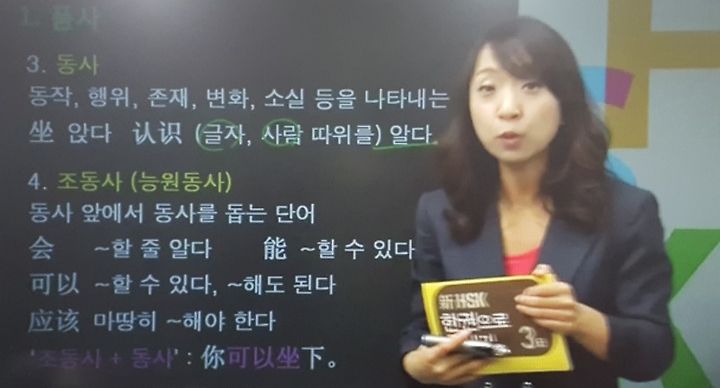 1. 품사
3. 동사
동작, 행위, 존재, 변화, 소실 등을 나타내는
坐 앉다 认识 (글자, 사람 따위를) 알다
4. 조동사 (능원동사)
동사 앞에서 동사를 돕는 단어
会 ~할 줄 알다 能 ~할 수 있다
可以 ~할 수 있다, ~해도 된다
应该 마땅히 ~해야 한다
'조동사 + 동사' : 你可以坐下。
新HSK
한권으로
3급